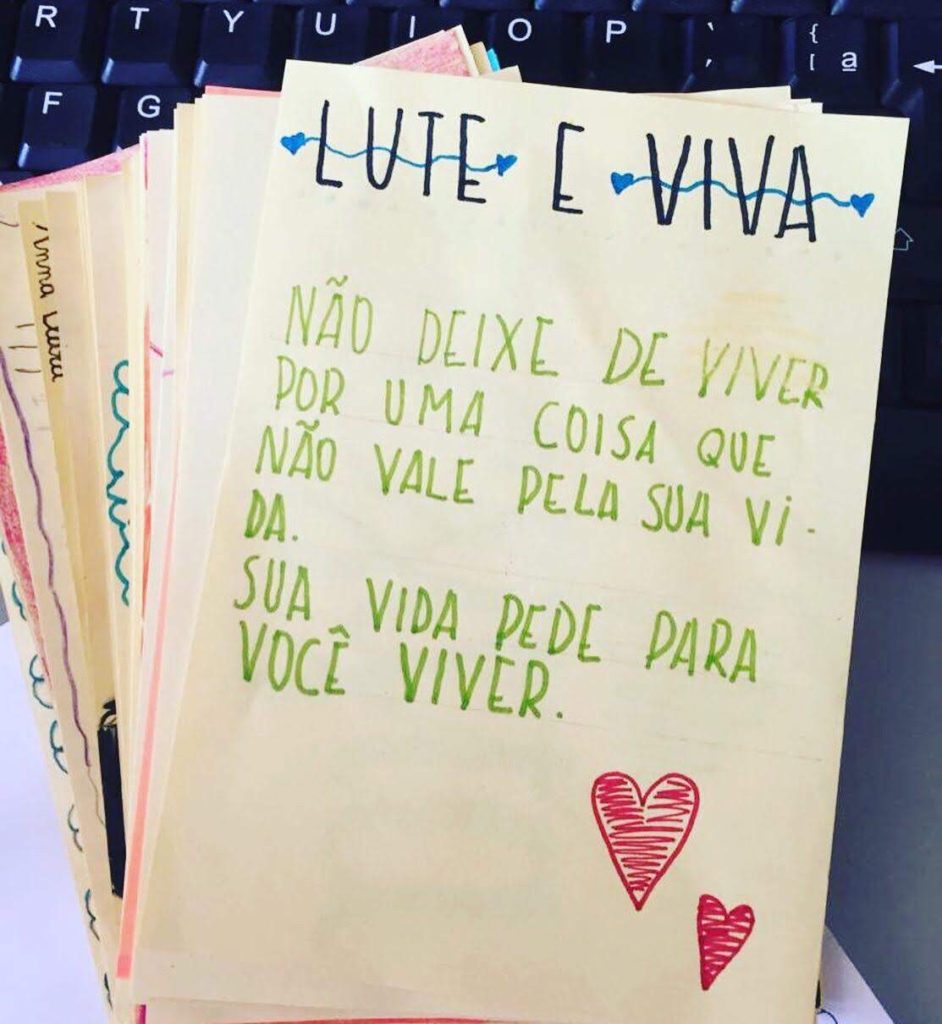 R T Y U I O P ` { ª
´ [
F G
LUTE E VIVA
NÃO DEIXE DE VIVER
POR UMA COISA QUE
NÃO VALE PELA SUA VI-
DA.
SUA VIDA PEDE PARA
VOCÊ VIVER.
Anna Luiza